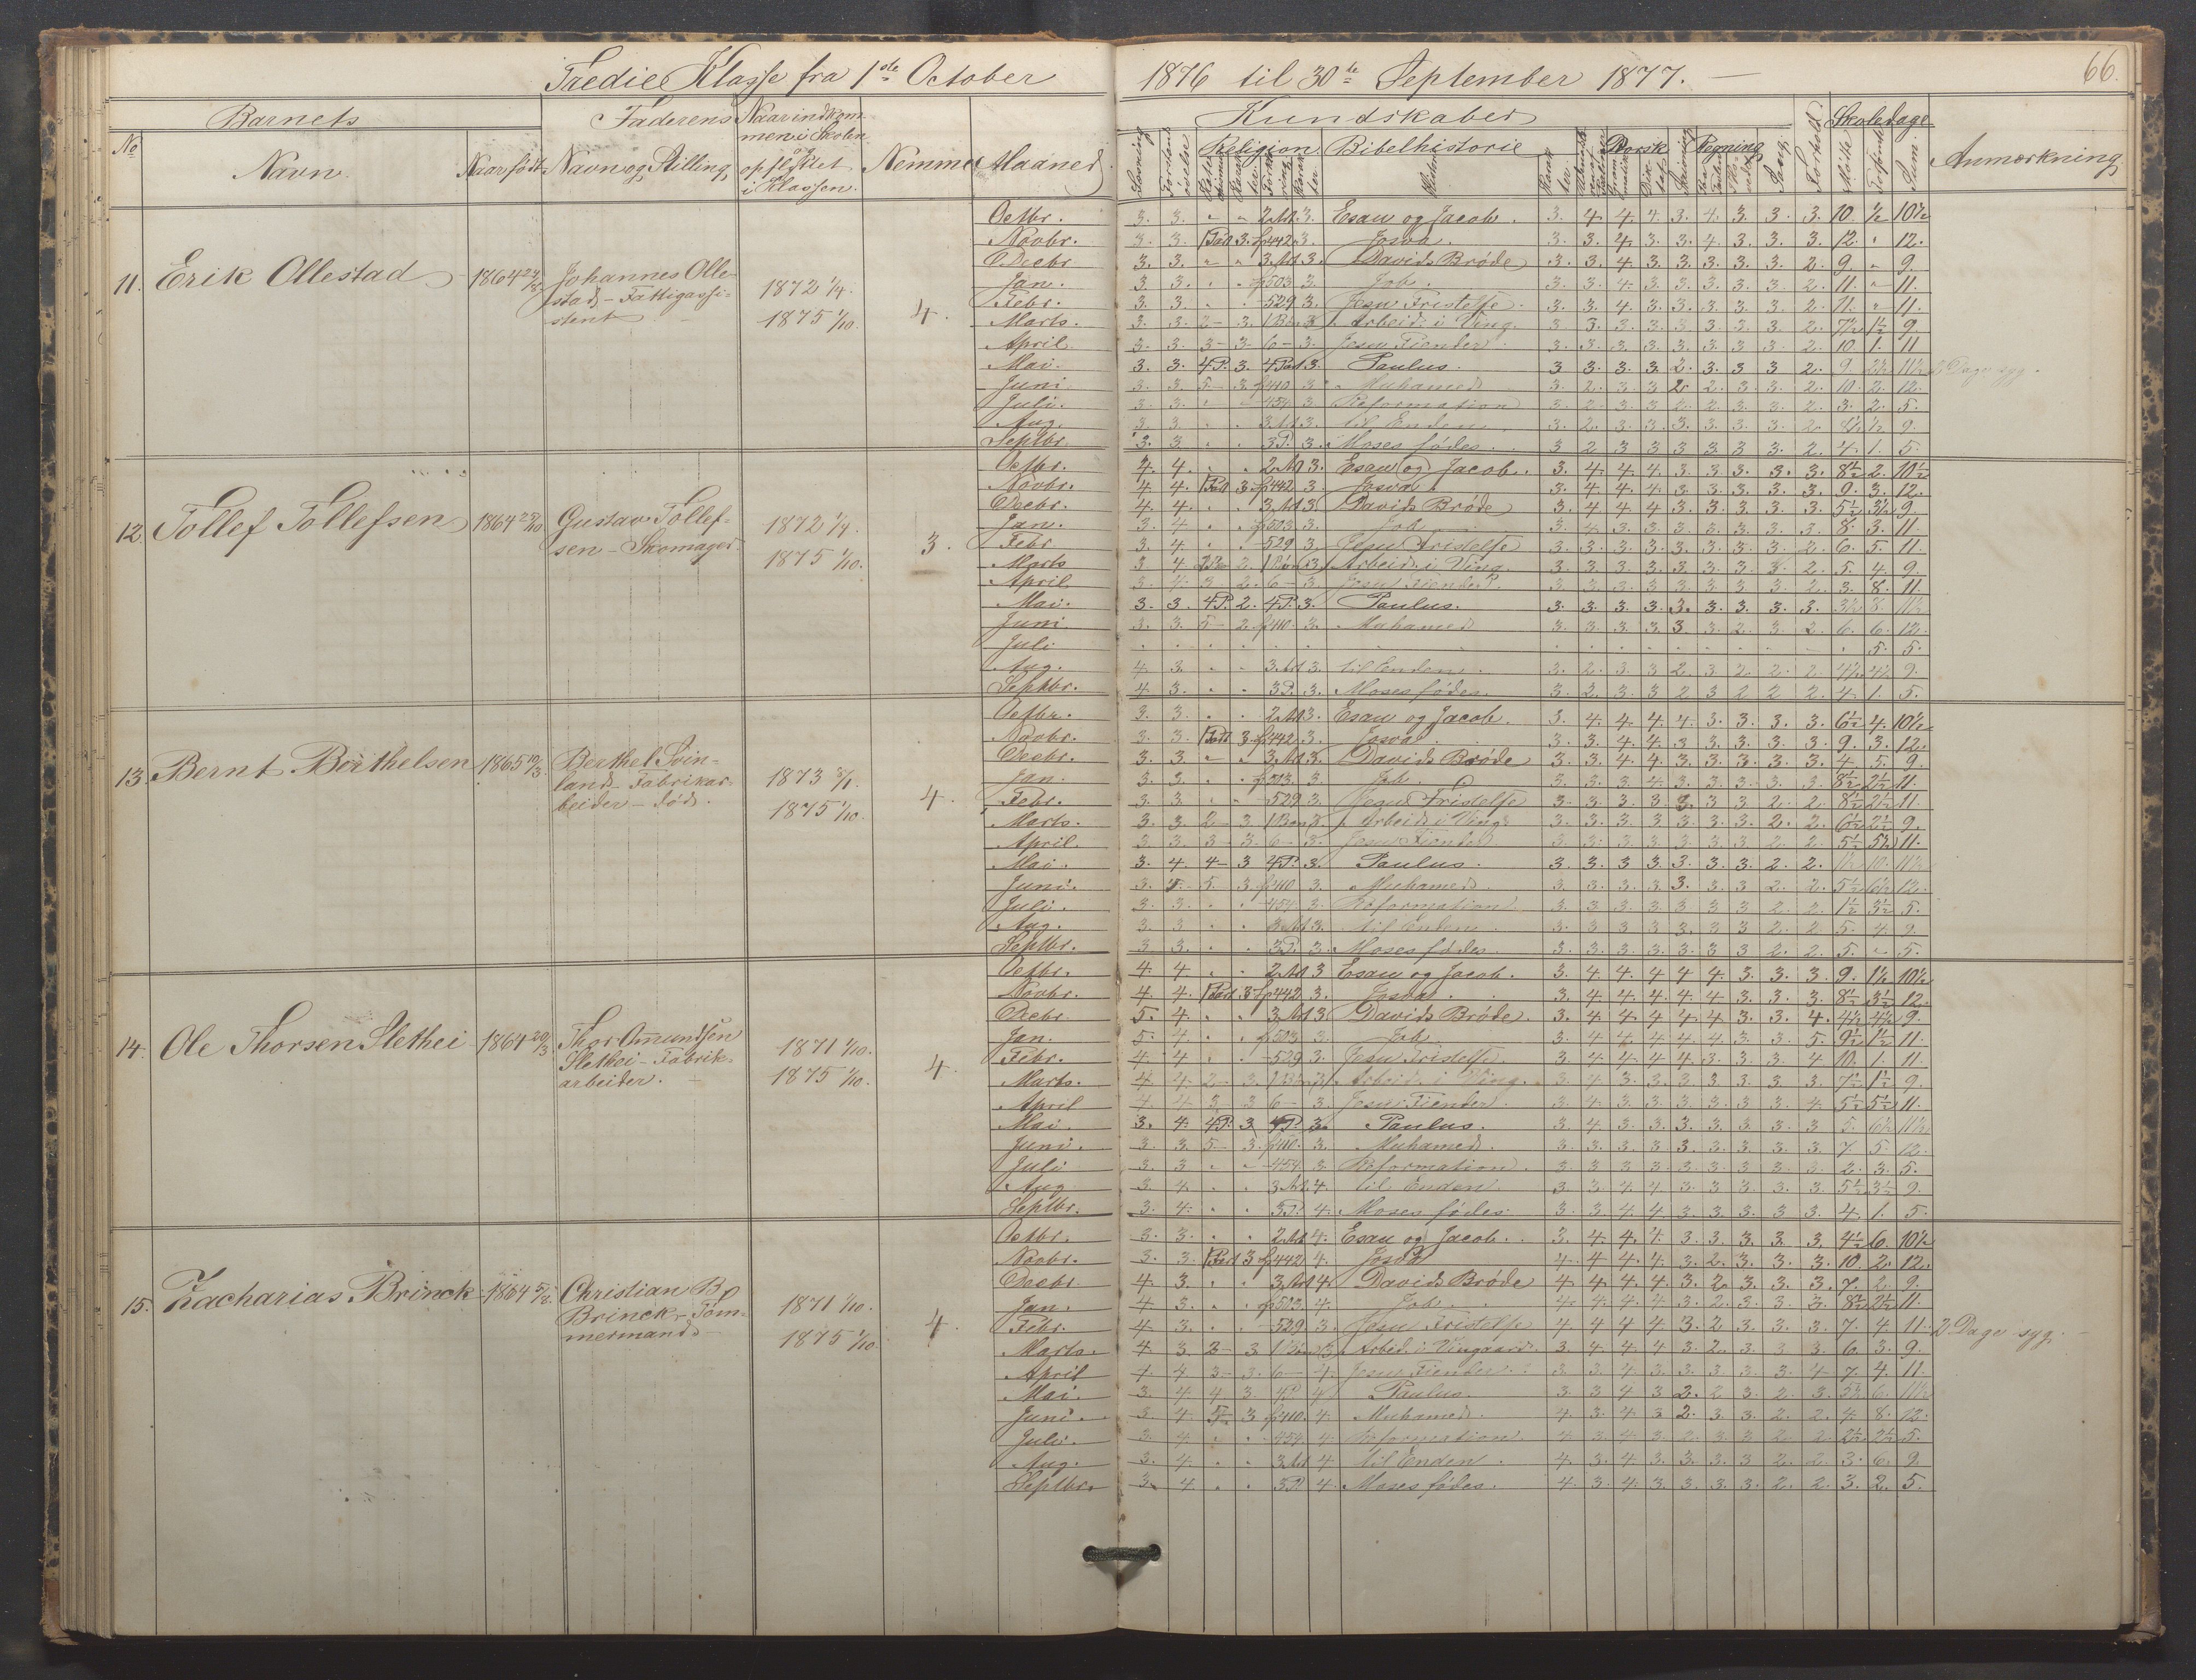 Tredie Klasse fra 1ste October 1876 til 30te September 1877.
66.
Barnets Faderens Naar indkom-
men i Skolen
og
opflyttet
i Klassen.
No Navn. Naar født. Navn og Stilling. Nemme Maaned.
Kundskaber Skoledage
Religion Bibelhistorie Norsk Regning Sang Forhold Mødte Forsømte Sum Anmærkning
11. Erik Ollestad 1864 Johannes Olle-
stad - Fattigassi-
stent
1872 1/4.
1875 1/10.
4.
Octbr. 3. 3. 2 Art. 3. Esau og Jacob. 3. 4. 4. 4. 3. 4. 3. 3. 3. 10. 1/2 10 1/2
Novbr. 3. 3. 3. 442. 3. Josva. 3. 3. 4. 3. 3. 4. 3. 3. 3. 12. " 12.
Decbr. 3. 3. 3 Art. 3. Davids Brøde 3. 3. 4. 3. 3. 3. 3. 3. 2. 9. " 9.
Jan. 3. 3. 503. 3. Job. 3. 3. 4. 3. 3. 3. 3. 3. 2. 11. " 11.
Febr. 3. 3. 529 3. Jesu Fristelse. 3. 3. 4. 3. 3. 3. 3. 3. 2. 11. " 11.
Marts. 3. 3. 2 - 3. Arbeid. i Ving. 3. 3. 3. 3. 3. 3. 3. 3. 2. 7 1/2 1 1/2 9.
April. 3. 3. 3 - 3. 6 - 3. Jesu Fiender. 3. 3. 3. 3. 3. 3. 3. 3. 2. 10. 1. 11
Mai. 3. 3. 4 P. 3. 3. Paulus. 3. 3. 3. 3. 2. 3. 3. 3. 2. 9. 2 1/2 11 1/2 2 Dage syg.
Juni 3. 3. 5 - 3. 410 3. Muhamed 3. 2. 3. 3. 2. 2. 3. 3. 2. 10. 2. 12.
Juli. 3. 3. 454 3. Reformation 3. 2. 3. 3. 2. 2. 3. 3. 2. 3. 2. 5.
Aug. 3. 3. 3 Art. 3. til Enden. 3. 2. 3. 3. 3. 3. 3. 3. 2. 8 1/2 1/2 9.
Septbr. 3. 3. 3 P. 3. Moses fødes. 3 2 3 3 3 3 3 3. 2. 4. 1. 5.
12. Tollef Tollefsen 1864 Gustav Tollef-
sen - Skomager.
1872 1/4.
1875 1/10.
3.
Octbr. 4. 4. 2 Art 3. Esau og Jacob. 3. 4. 4. 4. 3. 3. 3. 3. 3. 8 1/2 2. 10 1/2
Novbr. 4. 4. 3. 442 3. Josva. 3. 4. 4. 4. 3. 3. 3. 3. 3. 9. 3. 12.
Decbr. 4. 4. 3 Art 3. Davids Brøde 3. 4. 4. 4. 3. 3. 3. 3. 3. 5 1/2 3 1/2 9.
Jan. 3. 4. 503. 3. Job 3. 4. 3. 3. 3. 3. 3. 3. 3. 8. 3. 11.
Febr 3. 4. 529 3. Jesu Fristelse 3. 3. 3. 3. 3. 3. 3. 3. 2. 6. 5. 11.
Marts 3 4 2. 3. Arbeid. i Ving. 3. 3. 3. 3. 3. 3. 3. 3. 2. 5. 4. 9.
April. 3. 4. 3. 2. 6 - 3. Jesu Fiender. 3. 3. 3. 3. 3. 3. 3. 3. 2. 3. 8. 11.
Mai. 3. 3. 4 P. 2. 4 P. 3. Paulus. 3. 3. 3. 3. 3. 3. 3. 3. 3. 3 1/2 8. 11 1/2
Juni. 3. 3. 5 - 2. 410. 3. Muhamed 3. 3. 3. 3. 3. 3. 2. 3. 2. 6. 6. 12.
Juli 5. 5.
Aug. 4. 3. 3 Art 3. til Enden. 3. 2. 3. 3. 2. 3. 2. 2. 2. 4 1/2 4 1/2 9.
Septbr. 4. 3. 3 P. 3. Moses fødes. 3. 2. 3. 3 2 3 2 2 2. 4. 1. 5.
13. Bernt Berthelsen 1865 19/3. Berthel Svin-
land - Fabrikar-
beider - død.
1873
1875 1/10.
4.
Octbr. 3. 3. 2 Art 3. Esau og Jacob. 3. 4. 4. 4. 4. 3. 3. 3. 3. 6 1/2 4. 10 1/2
Novbr. 3. 3. 3. 442 3. Josva 3. 3. 4. 4. 3. 3. 3. 3. 3. 9. 3. 12.
Decbr. 3. 3. 3 Art 3. Davids Brøde 3. 3. 4. 4. 3. 3. 3. 3. 3. 4. 5. 9.
Jan. 3. 3. 503. 3. Job. 3. 3. 3. 4. 3. 3. 3. 3. 3. 8 1/2 2 1/2 11.
Febr. 3. 3. 529 3. Jesu Fristelse 3. 3. 3. 3. 3. 3. 3. 2. 2. 8 1/2 2 1/2 11.
Marts. 3. 3. 2 - 3. Arbeid. i Ving. 3. 3. 3. 3. 3. 3. 3. 2. 2. 6 1/2 2 1/2 9.
April. 3. 3. 3 - 3. 6 - 3. Jesu Fiender 3. 3. 3. 3. 3. 3. 3. 2. 2. 5 1/2 5 1/2 11.
Mai. 3. 4. 4 - 3 4 P. 3. Paulus. 3. 3. 3 3. 3. 3. 3. 2. 2. 1 1/2 10. 11 1/2
Juni. 3. 5. 3. 410 3. Muhamed. 3. 3. 3. 3. 3. 3. 3 2. 2. 5 1/2 6 1/2 12.
Juli. 3. 3. 454 3. Reformation. 3. 3. 3. 3. 3. 3. 3 2. 2. 1 1/2 3 1/2 5.
Aug. 3. 3 3 Art 3. til Enden 3. 3 3 3 3. 3 3 2. 2. 5. 4. 9.
Septbr. 3 3. 3 P. 3. Moses fødes 3. 3. 3. 3. 3. 3. 3 2. 2. 5. " 5.
14. Ole Thorsen Slethei 1864 20/3 Thor Omundsen
Slethei - Fabrik-
arbeider.
1871 1/10.
1875 1/10.
4.
Octbr. 4. 4 2 Art 3 Esau og Jacob. 3. 4 4. 4 4 4. 3. 3. 3. 9. 1 1/2 10 1/2
Novbr. 4. 4. 3. 442 3. Josva. 3. 4. 4. 4. 4. 4 3. 3. 3. 8 1/2 3 1/2 12.
Decbr. 5. 4. 3 Art 3 Davids Brøde. 3. 4. 4. 4. 4. 4. 3. 3. 4. 4 1/2 4 1/2 9.
Jan. 5. 4 503 3. Job 3. 4 4. 4. 4. 4. 3 3. 5. 9 1/2 1 1/2 11.
Febr. 4. 4 529 3. Jesu Fristelse. 3. 4. 4. 4 4 3. 3. 3. 4 10. 1. 11.
Marts. 4. 4 2 - 3. Arbeid. i Ving. 3. 4. 3. 3. 3. 3. 3. 3. 3. 7 1/2 1 1/2 9.
April 4. 4 3 - 3 6 - 3. Jesu Fiender. 3. 4. 3. 3. 3. 3. 3 3. 4. 5 1/2 5 1/2 11.
Mai. 3. 4. 4 P. 3 4 P. 3. Paulus. 3. 4 3. 3. 3. 3. 3. 3. 3 5. 6 1/2 11 1/2
Juni. 3. 3. 5 - 3. 410. 3. Muhamed. 3. 3. 3. 3. 3. 3. 3. 3. 3. 7. 5 12.
Juli 3. 3 454 3. Reformation. 3. 3 3 3. 3. 3. 3. 3. 3. 2. 3. 5.
Aug 3. 4. 3 Art. 4. til Enden. 3. 3. 4 4 3. 3 3. 3. 3. 5 1/2 3 1/2 9.
Septbr. 3. 4. 3 P. 4. Moses fødes. 3. 3 4 4 3. 3. 3. 3 3. 4. 1. 5.
15. Zacharias Brinck 1864 Christian B.
Brinck - Tøm-
mermand
1871 1/10.
1875 1/10.
4.
Octbr. 3. 3. 2 Art 4. Esau og Jacob. 3. 4. 4. 4. 3. 3. 3. 3. 3. 4 1/2 6. 10 1/2
Novbr. 3. 3. 3 442 4. Josva 4. 4 4. 4. 3. 2. 3. 3. 3. 10. 2. 12.
Decbr. 4. 3. 3 Art 4. Davids Brøde 4. 4. 4. 4. 3. 2. 3. 3. 3. 7. 2. 9.
Jan. 4. 3. 503. 4. Job 4. 4. 4. 4 3. 2. 3. 3. 3. 8 1/2 2 1/2 11.
Febr. 4. 3. 529. 3. Jesu Fristelse 4 4 4 4 3. 2 3. 3. 3. 7. 4 11. 2 Dage syg.
Marts. 4. 3. 2 - 3. Arbeid. i Vingaard. 3. 4. 4. 4 3. 2. 3. 3 3. 6. 3. 9.
April 4. 4. 3 - 3. 6 - 4. Jesu Fiender. 3. 3 4. 3. 3. 3. 3. 3. 4. 7. 4. 11.
Mai. 3. 4. 4. 3 4 P. 4 Paulus. 3. 3 4 3 2. 2 3. 2. 3. 5 1/2 6. 11 1/2
Juni. 3. 4. 5 - 3. 410. 4. Muhamed. 4. 3. 4. 3 2. 3. 3. 2. 2. 4. 8. 12.
Juli. 3. 4. 454. 4 Reformation. 4. 3. 4 3. 2. 3. 3 2. 2. 2 1/2 2 1/2 5.
Aug. 3. 4. 3 Art 4 til Enden. 4. 3. 4 3. 3. 3. 3 2. 2. 3. 6. 9.
Septbr. 3. 4. 3 P. 4. Moses fødes. 4. 3. 4. 3. 3. 3. 3. 2. 2. 3. 2. 5.